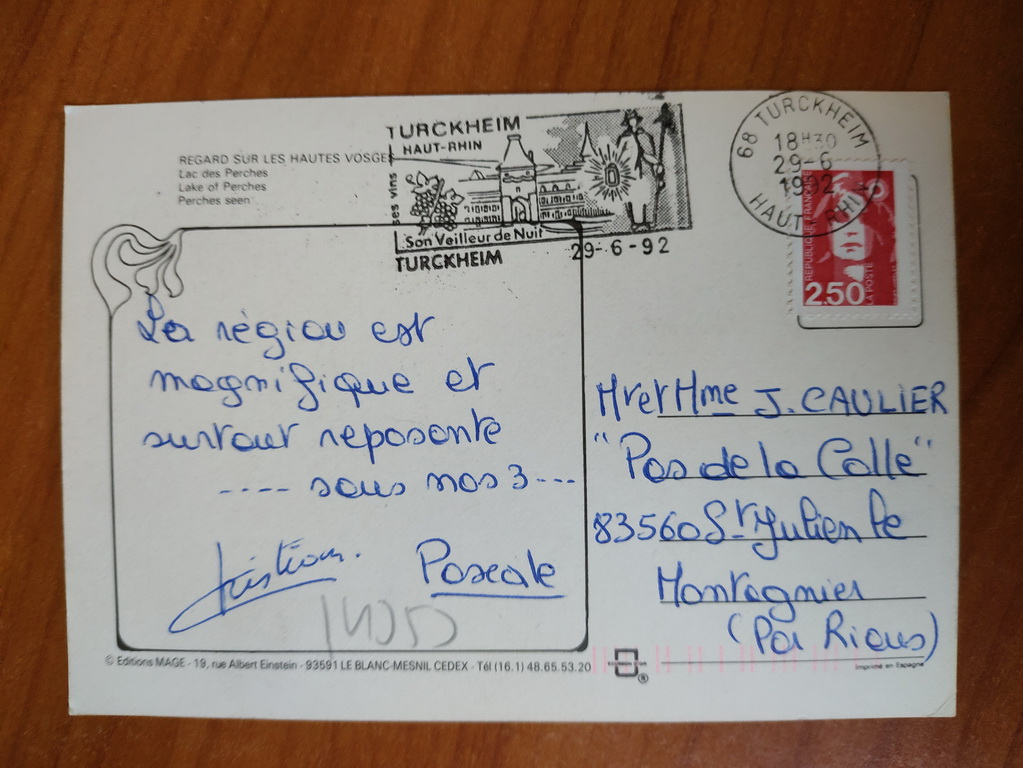 TURCKHEIM
HAUT-RHIN
ses vins
Son Veilleur de Nuit
TURCKHEIM
29-6-92
68 TURCKHEIM
18H30
29-6
1992
HAUT-RHIN
REPUBLIQUE FRANCAISE
2.50
LA POSTE
REGARD SUR LES HAUTES VOSGES
Lac des Perches
Lake of Perches
Perches seen
La région est
magnifique et
surtout reposante
---- sans nos 3---
Pascale
Mr et Mme J. CAULIER
"Pas de la Colle"
83560 St Julien le
Montagnier
(Par Rians)
© Editions MAGE - 19, rue Albert Einstein - 93591 LE BLANC-MESNIL CEDEX - Tél (16.1) 48.65.53.20
®
Imprimé en Espagne